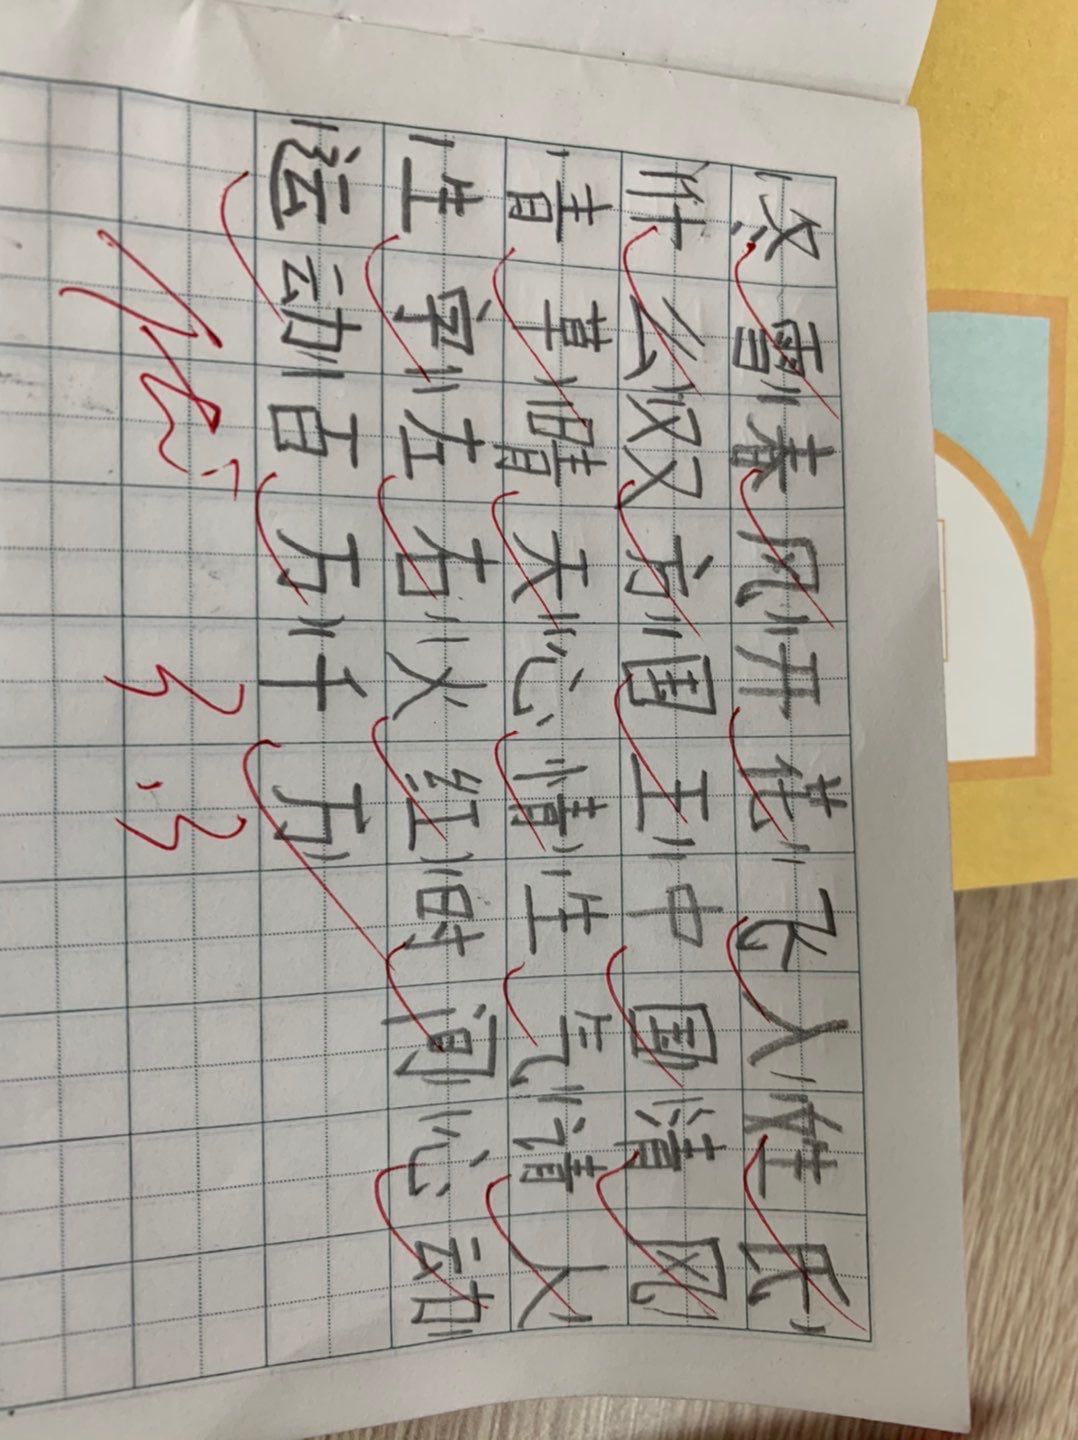 冬雪||春风||开花||飞入||姓氏||
什么||双方||国王||中国||清风||
青草||晴天||心情||生气||请人||
生字||左右||火红||时间||心动||
运动||百万||千万||
3.3